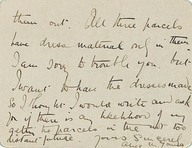 them out. All three parcels
have dress material only in them
I am sorry to trouble you. but
I want to have the dresses made
So I thought I would write and ask
you if there is any likelihood of my
getting the parcels in the not too
distant future. yours sincerely